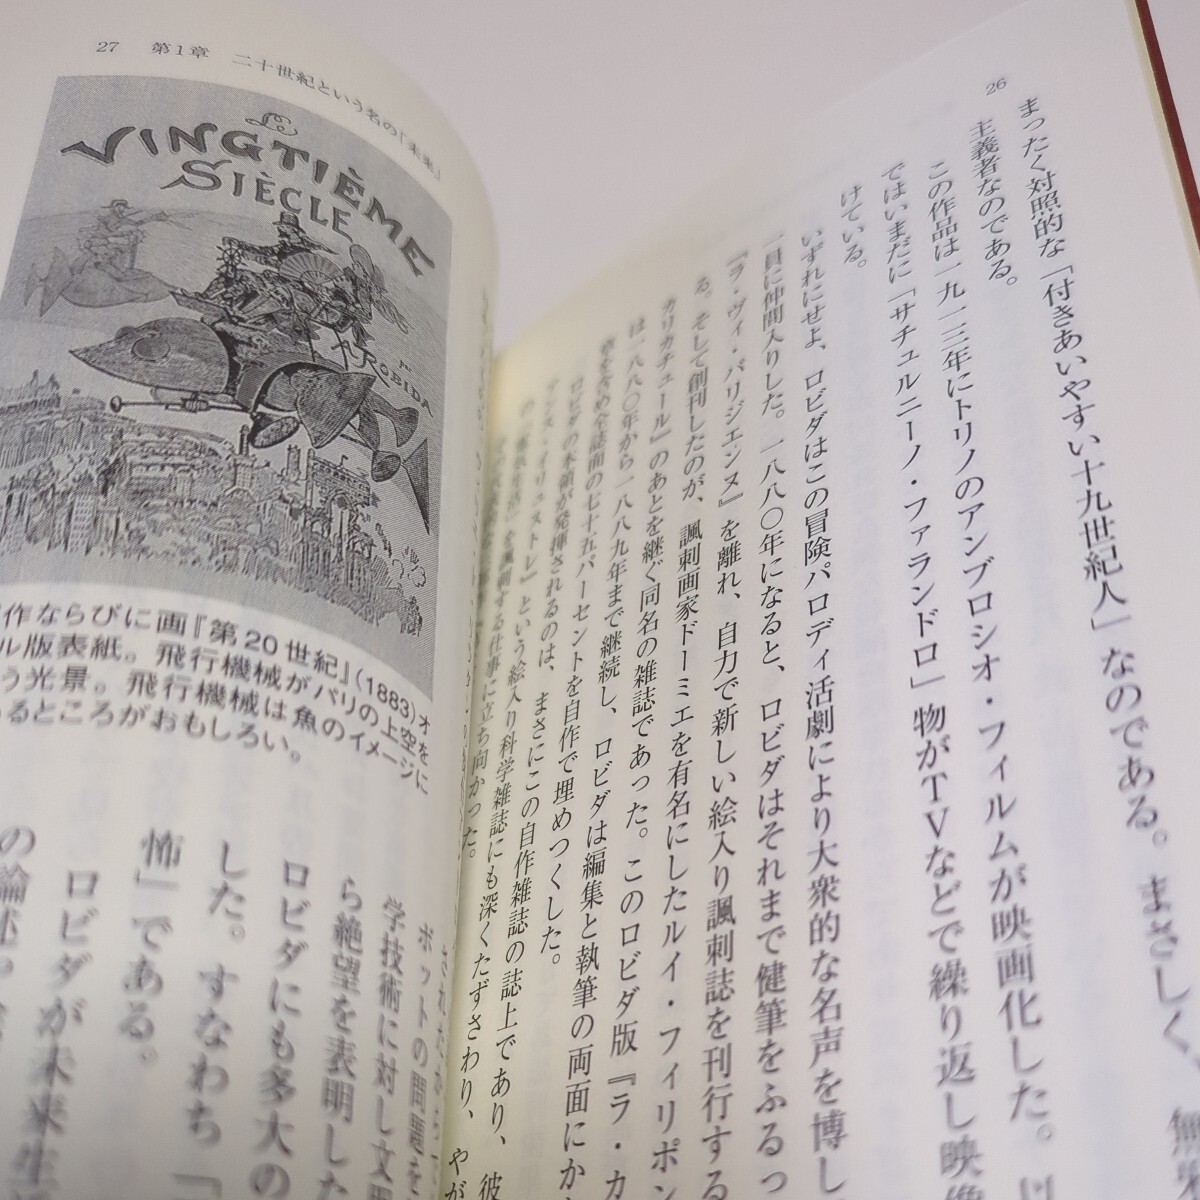 26
まったく対照的な「付きあいやすい十九世紀人」なのである。まさしく、無邪
主義者なのである。
この作品は一九一三年にトリノのアンブロシオ・フィルムが映画化した。
ではいまだに「サチュルニーノ・ファランドロ」物がTVなどで繰り返し映像
けている。
いずれにせよ、ロビダはこの冒険パロディ活劇により大衆的な名声を博し
一員に仲間入りした。一八八〇年になると、ロビダはそれまで健筆をふるっ
『ラ・ヴィ・パリジエンヌ』を離れ、自力で新しい絵入り諷刺誌を刊行する
る。そして創刊したのが、諷刺画家ドーミエを有名にしたルイ・フィリポン
カリカチュール』のあとを継ぐ同名の雑誌であった。このロビダ版『ラ・カ
は一八八〇年から一八八九年まで継続し、ロビダは編集と執筆の両面にか
を含め全誌面の七十五パーセントを自作で埋めつくした。
ロビダの本領が発揮されるのは、まさにこの自作雑誌の誌上であり、彼
イリュストレ』という絵入り科学雑誌にも深くたずさわり、やが
を諷刺する仕事に立ち向かった。
27 第1章 二十世紀という名の「未来」
LE
VINGTIÈME
SIÈCLE
PAR
ROBIDA
作ならびに画『第20世紀』(1883)オ
ル版表紙。飛行機械がパリの上空を
う光景。飛行機械は魚のイメージに
るところがおもしろい。
ボットの問題を
学技術に対し文
ら絶望を表明した
ロビダにも多大の
した。すなわち「
怖」である。
ロビダが未来生
の論述